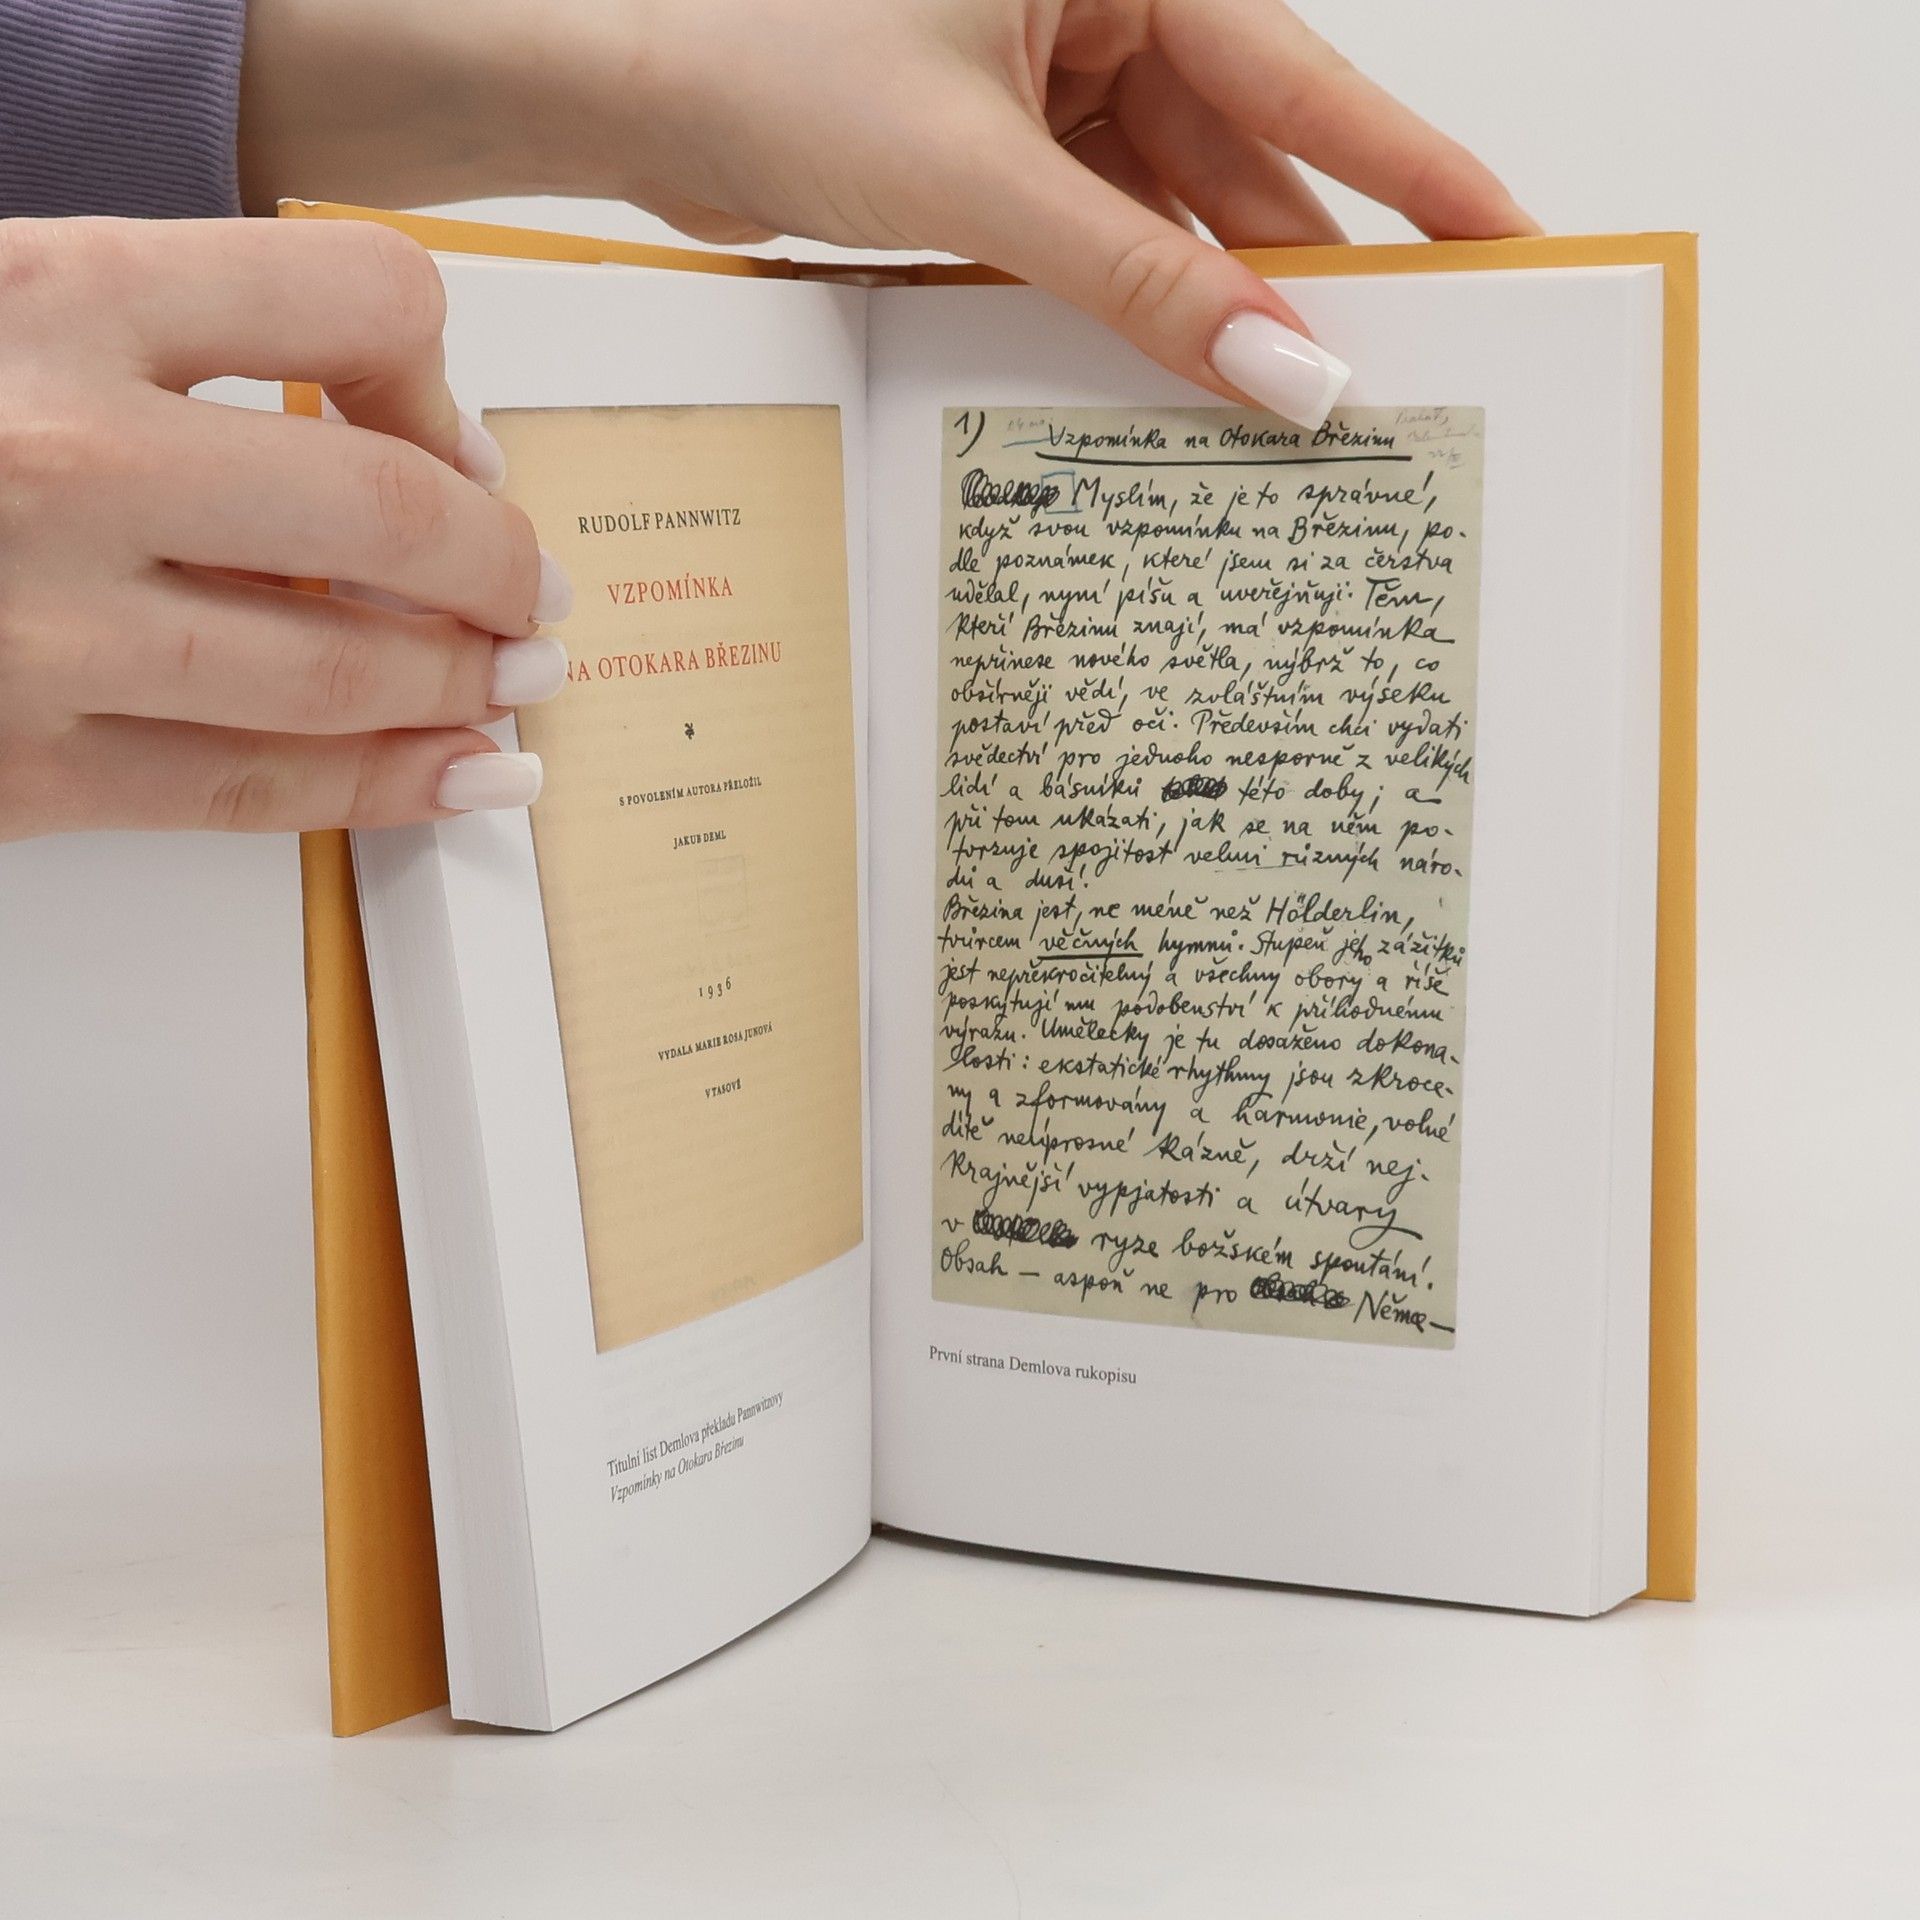 RUDOLF PANNWITZ
VZPOMÍNKA
NA OTOKARA BŘEZINU
S POVOLENÍM AUTORA PŘELOŽIL
JAKUB DEML
1936
VYDALA MARIE ROSA JUNOVÁ
V TASOVĚ
Titulní list Demlova překladu Pannwitzovy
Vzpomínky na Otokara Březinu
1)
Vzpomínka na Otokara Březinu
Myslím, že je to správné,
když svou vzpomínku na Březinu, po-
dle poznámek, které jsem si za čerstva
udělal, nyní píšu a uveřejňuji. Těm,
kteří Březinu znají, má vzpomínka
nepřinese nového světla, nýbrž to, co
obšírněji vědí, ve zvláštním výseku
postaví před oči. Především chci vydati
svědectví pro jednoho nesporně z velikých
lidí a básníků této doby; a
při tom ukázati, jak se na něm po-
tvrzuje spojitost velmi různých náro-
dů a duší.
Březina jest, ne méně než Hölderlin,
tvůrcem věčných hymnů. Stupeň jeho zážitků
jest nepřekročitelný a všechny obory a říše
poskytují mu podobenství k příhodnému
výrazu. Umělecky je tu dosaženo dokona-
losti: ekstatické rhythmy jsou zkroce-
ny a zformovány a harmonie, volné
dítě neúprosné kázně, drží nej-
krajnější vypjatosti a útvary
v ryze božském spoutání.
Obsah — aspoň ne pro Něme—
První strana Demlova rukopisu